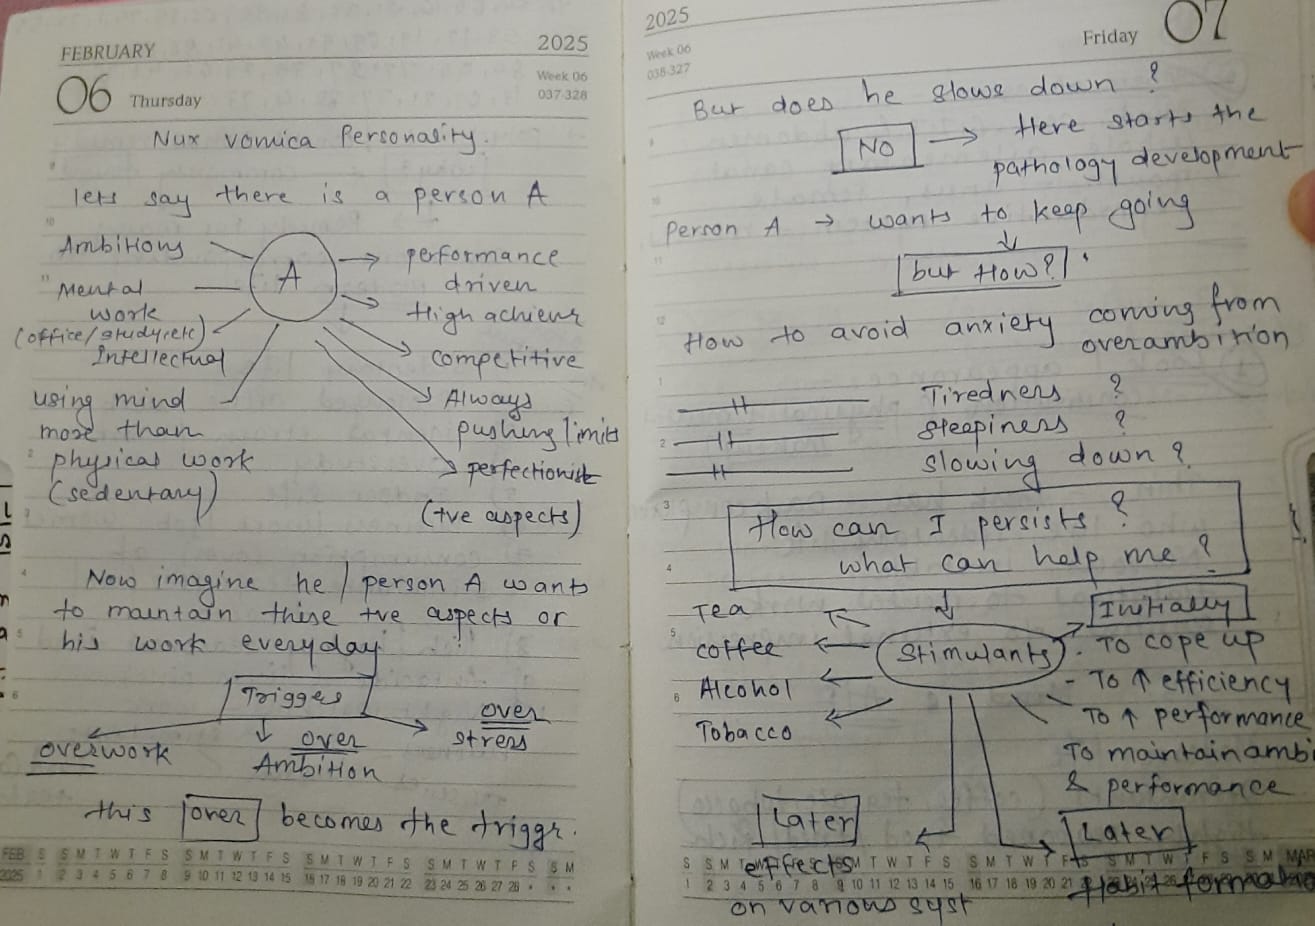 FEBRUARY 2025
06 Thursday
Week 06
037-328
Nux vomica Personality.
lets say there is a person A
Ambitious
Mental
work
(office/study,etc)
Intellectual
using mind
more than
physical work
(sedentary)
A
performance
driven
High achiever
competitive
Always
pushing limits
perfectionist
(+ve aspects)
Now imagine he / person A wants
to maintain these +ve aspects or
his work everyday
Trigger
overwork
over
Ambition
over
stress
this over becomes the triggr.
FEB S S M T W T F S S M T W T F S S M T W T F S S M T W T F S S M
2025 1 2 3 4 5 6 7 8 9 10 11 12 13 14 15 16 17 18 19 20 21 22 23 24 25 26 27 28
2025
Friday 07
Week 06
038-327
But does he slows down ?
NO → Here starts the
pathology development
Person A → wants to keep going
but How?
How to avoid anxiety coming from
overambition
Tiredness ?
Sleepiness ?
Slowing down ?
How can I persists ?
what can help me ?
Tea
coffee
Alcohol
Tobacco
Stimulants
Initially
- To cope up
- To ↑ efficiency
To ↑ performance
To maintain ambi
& performance
Later
effects
on various syst
Later
Habit forma
S S M T W T F S S M T W T F S S M MAR
1 2 3 4 5 6 7 8 9 10 11 12 13 14 15 16 17 18 19 20 21